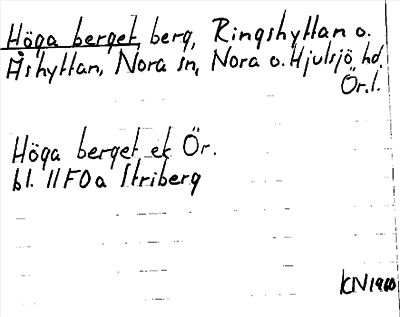 Höga berget, berg, Ringshyttan o.
Åshyttan, Nora sn, Nora o. Hjulsjö hd.
Ör. l.
Höga berget ek Ör.
bl. 11F0a Striberg
KN 1960